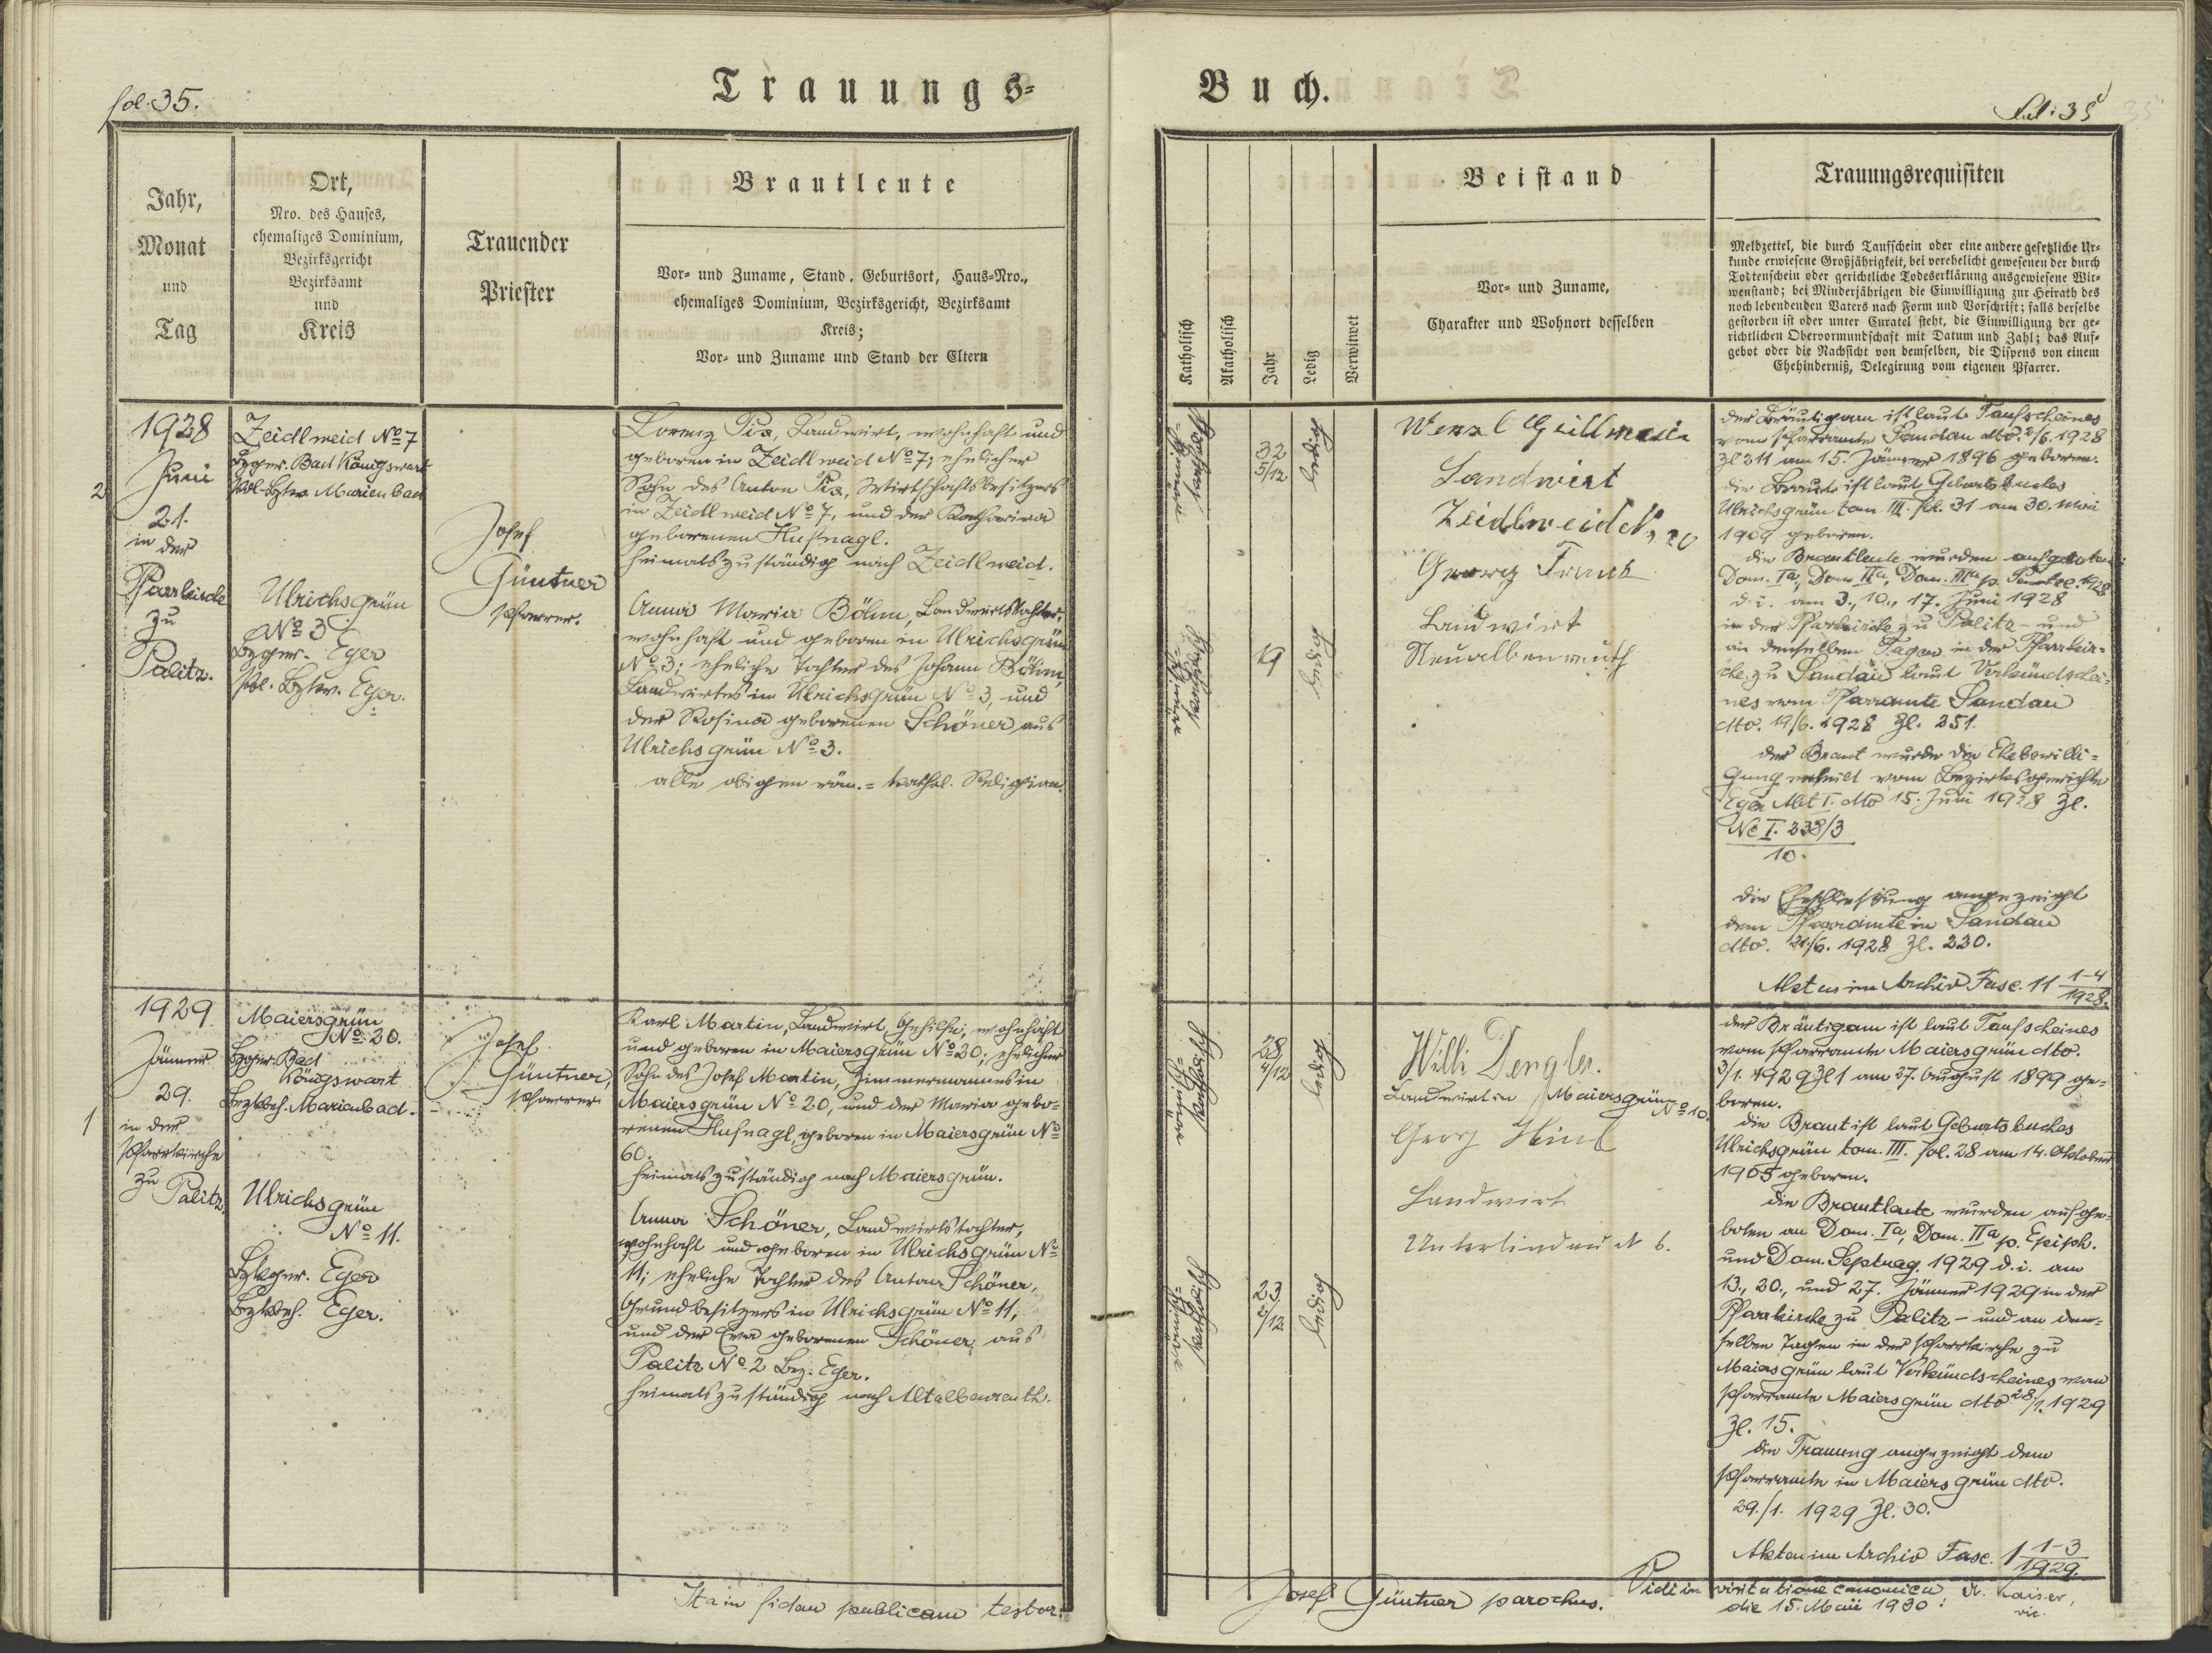 fol. 35.
Trauungs-
Jahr,
Monat
und
Tag
Ort,
Nro. des Hauses,
ehemaliges Dominium,
Bezirksgericht
Bezirksamt
und
Kreis
Trauender
Priester
Brautleute
Vor- und Zuname, Stand, Geburtsort, Haus-Nro.,
ehemaliges Dominium, Bezirksgericht, Bezirksamt
Kreis;
Vor- und Zuname und Stand der Eltern
1928
Juni
2
21.
in der
Pfarrkirche
zu
Palitz.
Zeidlweid No 7
Bzger. Bad Königswart
Pol. Bzkw. Marienbad
Ulrichsgrün
No 3
Bzger. Eger
Pol. Bzkw. Eger.
Josef
Güntner
Pfarrer.
Lorenz Pix, Landwirt, wohnhaft und
geboren in Zeidlweid No 7; ehelicher
Sohn des Anton Pix, Wirtschaftsbesitzers
in Zeidlweid No 7, und der Katharina
geborenen Hufnagl.
heimatszuständig nach Zeidlweid.
Anna Maria Böhm, Landwirtstochter,
wohnhaft und geboren in Ulrichsgrün
No 3; eheliche Tochter des Johann Böhm,
Landwirtes in Ulrichsgrün No 3, und
der Rosina geborenen Schöner aus
Ulrichsgrün No 3.
alle obigen röm.=kathol. Religion.
1929
Jänner
29.
1
in der
Pfarrkirche
zu
Palitz.
Maiersgrün
No 20.
Bzger. Bad
Königswart
Bezkbeh. Marienbad.
Ulrichsgrün
No 11.
Bzkger. Eger
Bzkbeh. Eger.
Josef
Güntner,
Pfarrer
Karl Martin, Landwirt, Gehilfe, wohnhaft
und geboren in Maiersgrün No 20; ehelicher
Sohn des Josef Martin, Zimmermannes in
Maiersgrün No 20, und der Maria gebo=
renen Hufnagl, geboren in Maiersgrün No
60.
heimatszuständig nach Maiersgrün.
Anna Schöner, Landwirtstochter,
wohnhaft und geboren in Ulrichsgrün No
11; eheliche Tochter des Anton Schöner,
Grundbesitzers in Ulrichsgrün No 11,
und der Eva geborenen Schöner aus
Palitz No 2 Bez. Eger.
heimatszuständig nach Altalbenreuth.
Ita in fidem publicam testor:
Buch.
fol: 35
Katholisch
Akatholisch
Jahr
Ledig
Verwitwet
Beistand
Vor- und Zuname,
Charakter und Wohnort desselben
Trauungsrequisiten
Meldzettel, die durch Taufschein oder eine andere gesetzliche Ur-
kunde erwiesene Großjährigkeit, bei verehelicht gewesenen der durch
Todtenschein oder gerichtliche Todeserklärung ausgewiesene Wit-
wenstand; bei Minderjährigen die Einwilligung zur Heirath des
noch lebendenden Vaters nach Form und Vorschrift; falls derselbe
gestorben ist oder unter Curatel steht, die Einwilligung der ge-
richtlichen Obervormundschaft mit Datum und Zahl; das Auf-
gebot oder die Nachsicht von demselben, die Dispens von einem
Ehehinderniß, Delegirung vom eigenen Pfarrer.
katholisch
32
5/12
ledig
19
ledig
Wenzl
Landwirt
Zeidlweid No 20
Georg Frank
Landwirt
Neualbenreuth
der Bräutigam ist laut Taufscheines
vom Pfarramte Sandau dto. 2/6. 1928
Zl 211 am 15. Jänner 1896 geboren.
die Braut ist laut Geburtsbuches
Ulrichsgrün tom. III. fol. 31 am 30. Mai
1909 geboren.
die Brautleute wurden aufgeboten:
Dom. Ia, Dom. IIa, Dom. IIIa p. Pentec. 1928
d. i. am 3., 10., 17. Juni 1928
in der Pfarrkirche zu Palitz - und
an denselben Tagen in der Pfarrkir=
che zu Sandau laut Verkündschei=
nes vom Pfarramte Sandau
dto. 19/6. 1928 Zl. 251.
der Braut wurde die Ehebewilli=
gung erteilt vom Bezirksgerichte
Eger Abt I. dto 15. Juni 1928 Zl.
Nc I. 238/3
10.
die Eheschliessung angezeigt
dem Pfarramte in Sandau
dto. 21./6. 1928 Zl. 220.
Akten im Archiv Fasc. 11 1-4
1928.
katholisch
28
4/12
ledig
katholisch
23
2/12
ledig
Willi Dengler.
Landwirt in Maiersgrün
No 10.
Georg
Landwirt
Unterlindau N 6.
der Bräutigam ist laut Taufscheines
vom Pfarramte Maiersgrün dto.
3/1. 1929 Zl 1 am 27. August 1899 ge=
boren.
die Braut ist laut Geburtsbuches
Ulrichsgrün tom. III. fol. 28 am 14. Oktober
1905 geboren.
die Brautleute wurden aufge=
boten an Dom. Ia, Dom. IIa p. Epiph.
und Dom. Septuag. 1929 d. i. am
13., 20., und 27. Jänner 1929 in der
Pfarrkirche zu Palitz - und an den=
selben Tagen in der Pfarrkirche zu
Maiersgrün laut Verkündscheines vom
Pfarramte Maiersgrün dto 28/1. 1929
Zl. 15.
die Trauung angezeigt dem
Pfarramte in Maiersgrün dto.
29./1. 1929 Zl. 30.
Akten im Archiv Fasc. 1 1-3
1929.
Josef Güntner parochus.
Vidi in visitatione canonica
die 15. Maii 1930:
Kaiser,
vic.